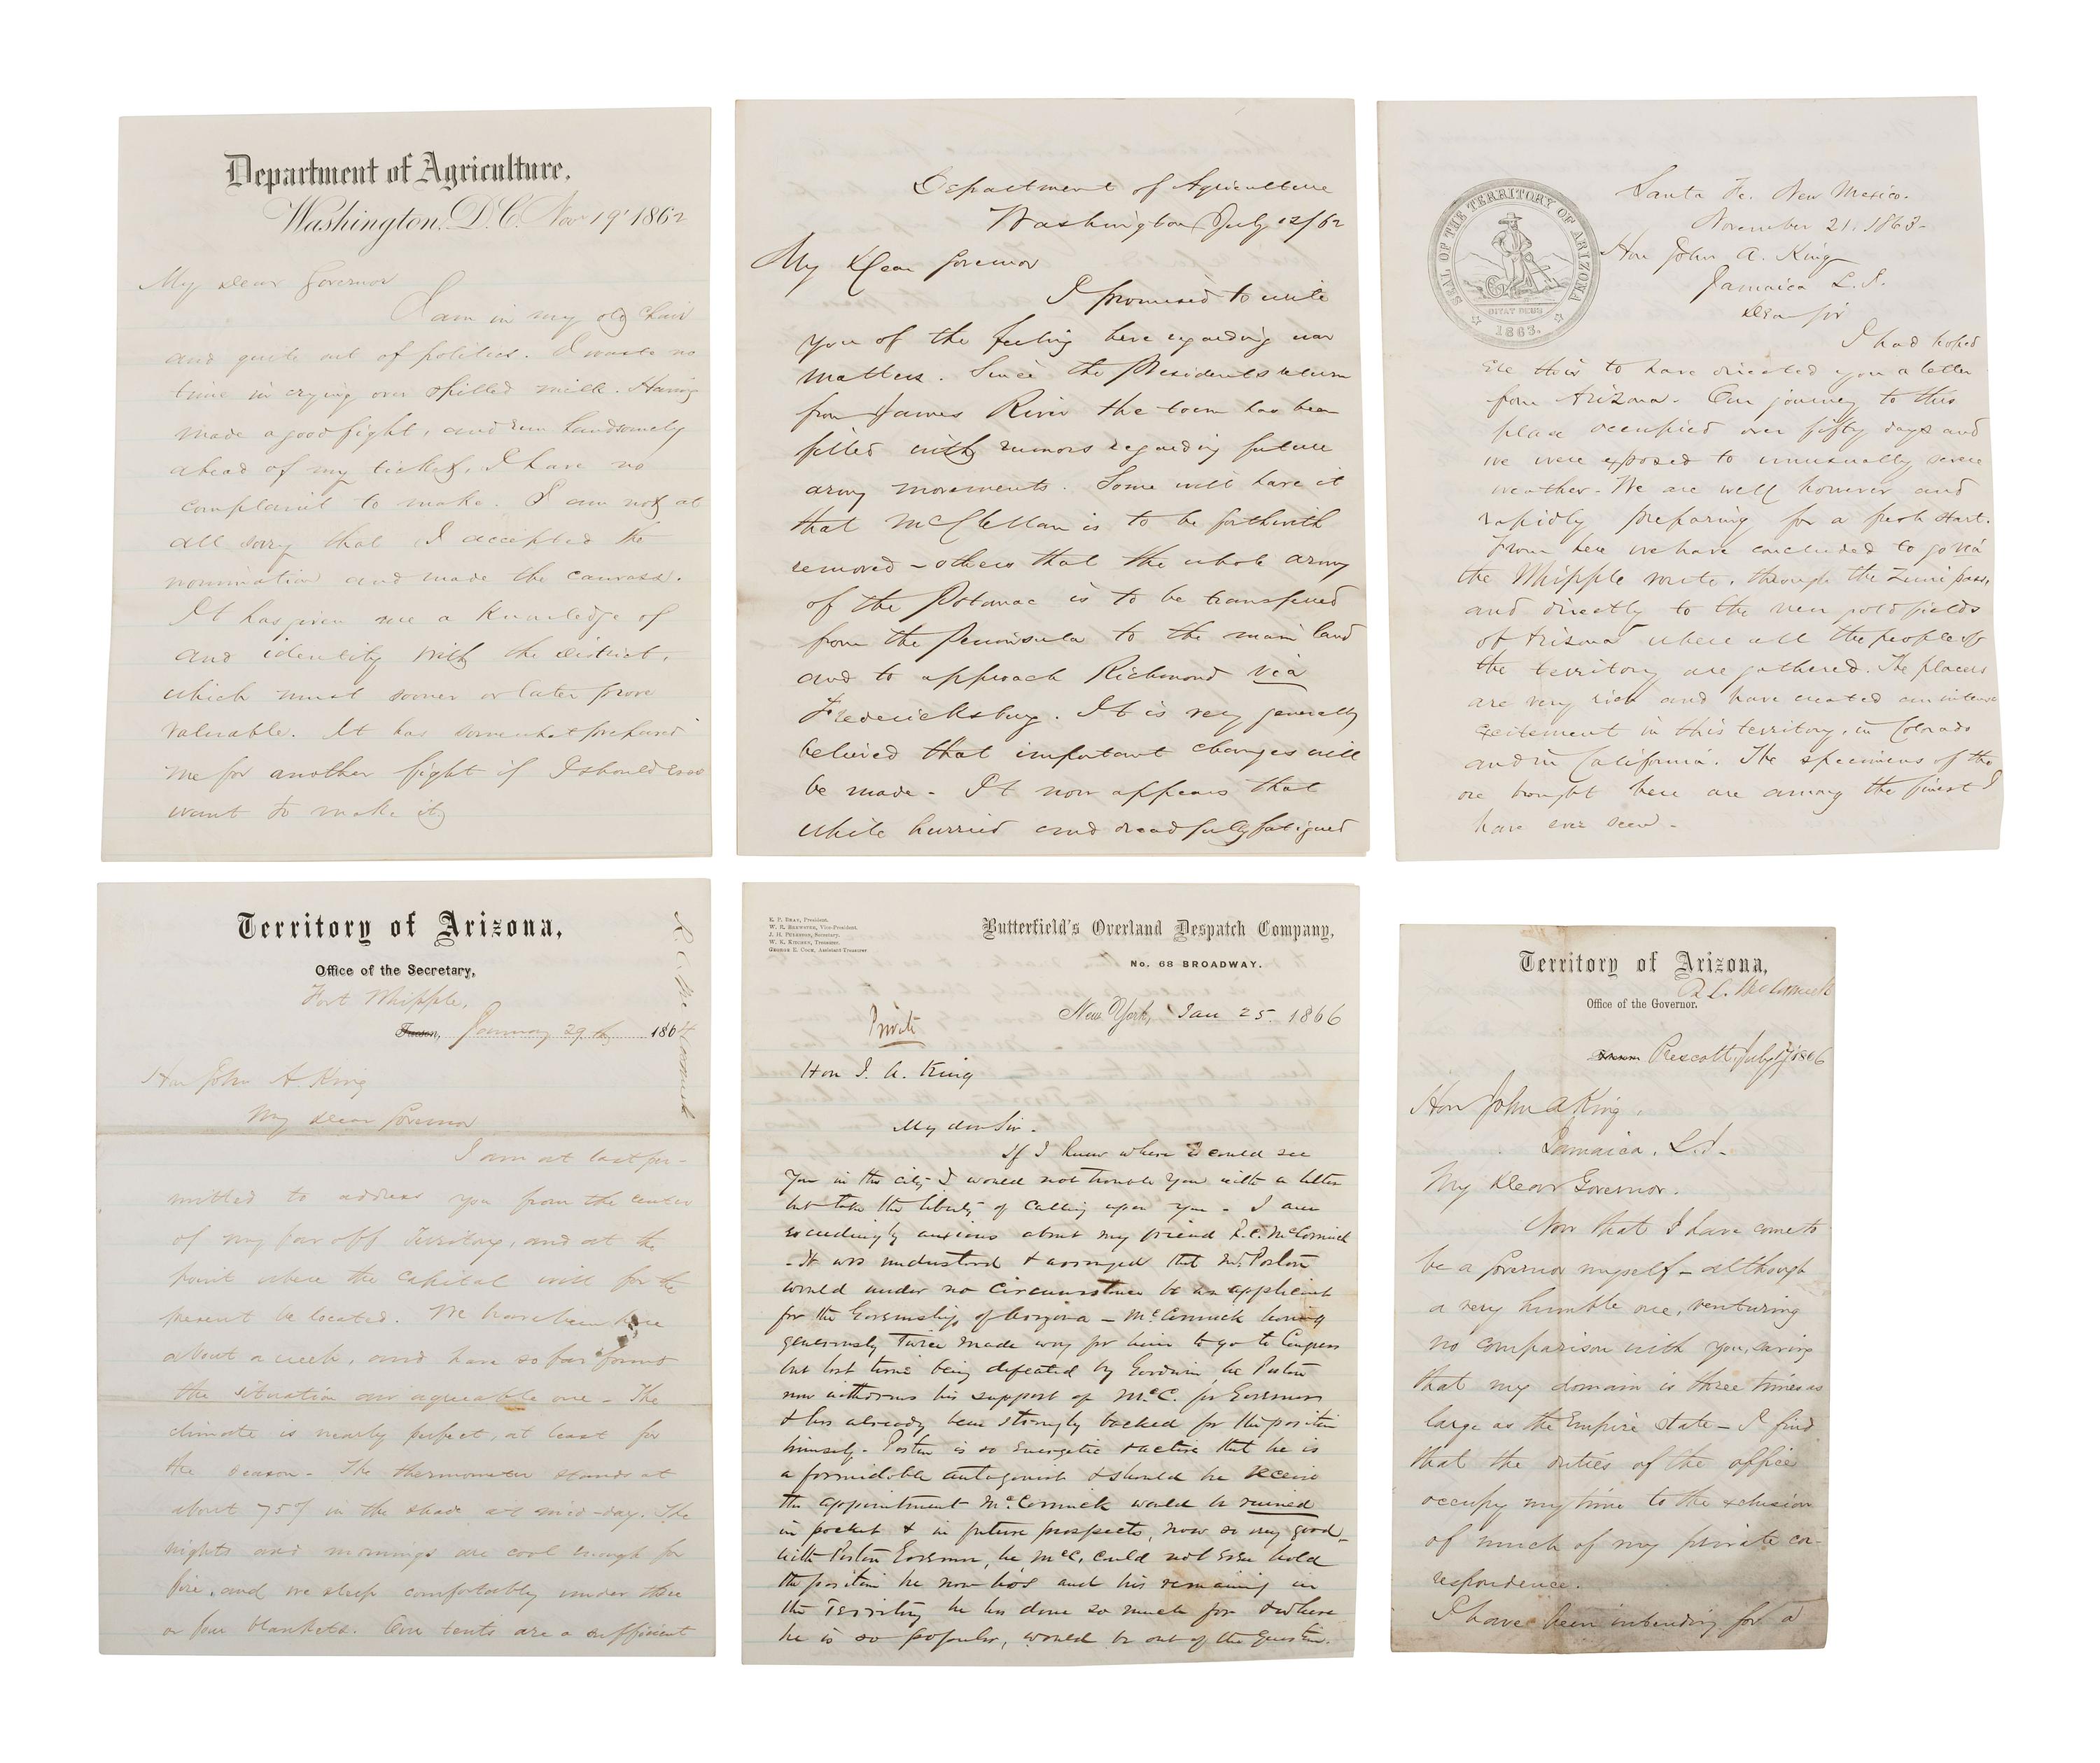 Department of Agriculture,
Washington, D.C. Nov 19' 1862
My dear Governor
I am in my old chair
and quite out of politics. I waste no
time in crying over spilled milk. Having
made a good fight, and run handsomely
ahead of my ticket, I have no
complaint to make. I am not at
all sorry that I accepted the
nomination and made the canvass.
It has given me a knowledge of
and identity with the district,
which must sooner or later prove
valuable. It has somewhat prepared
me for another fight if I should ever
want to make it
Department of Agriculture
Washington July 12/62
My Dear Governor
I promised to write
you of the feeling here regarding war
matters. Since the Presidents return
from James River the town has been
filled with rumors regarding future
army movements. Some will have it
that McClellan is to be forthwith
removed - others that the whole army
of the Potomac is to be transferred
from the peninsula to the main land
and to approach Richmond via
Fredericksburg. It is very generally
believed that important changes will
be made - It now appears that
while hurried and dreadfully fatigued
SEAL OF THE TERRITORY OF ARIZONA
DITAT DEUS
1863.
Santa Fe. New Mexico.
November 21. 1863-
Hon John A. King
Jamaica L.I.
Dear Sir
I had hoped
ere this to have directed you a letter
from Arizona. Our journey to this
place occupied over fifty days and
we were exposed to unusually severe
weather - We are well however and
rapidly preparing for a fresh start.
From here we have concluded to go via
the Whipple route, through the Zuni pass,
and directly to the new gold fields
of Arizona where all the people of
the territory are gathered. The placers
are very rich and have created an intense
excitement in this territory, in Colorado
and in California. The specimens of the
ore brought here are among the finest I
have ever seen -
Territory of Arizona,
Office of the Secretary,
Fort Whipple,
Tucson, January 29th 1864
R. C. McCormick
Hon John A. King
My dear Governor
I am at last per-
mitted to address you from the center
of my far off Territory, and at the
point where the Capital will for the
present be located. We have been here
about a week, and have so far found
the situation an agreeable one - The
climate is nearly perfect, at least for
the season - The thermometer stands at
about 75° in the shade at mid-day. The
nights and mornings are cool enough for
fire, and we sleep comfortably under three
or four blankets. Our tents are a sufficient
E. P. Bray, President.
W. B. Brewster, Vice-President.
J. H. Pulsston, Secretary.
W. K. Kitchen, Treasurer.
George E. Cock, Assistant-Treasurer
Butterfield's Overland Despatch Company,
No. 68 BROADWAY.
New York, Jan 25. 1866
Private
Hon J. A. King
My dear Sir -
If I knew where I could see
You in the city I would not trouble You with a letter
but take the liberty of calling upon you - I am
exceedingly anxious about my friend R.C. McCormick
- It was understood & arranged that Mr. Poston
would under no circumstance be an applicant
for the Governship of Arizona - McCormick having
generously twice made way for him to go to Congress
but last time being defeated by Goodwin, he Poston
now withdraws his support of McC. for Governor
& has already been strongly backed for the position
himself - Poston is so energetic & active that he is
a formidable antagonist & should he receive
the appointment McCormick would be ruined
in pocket & in future prospects, now so very good,
with Poston Governor, he McC, could not even hold
the position he now has and his remaining in
the Territory he has done so much for & where
he is so popular, would be out of the question.
Territory of Arizona,
R. C. McCormick
Office of the Governor.
Prescott, July 1866
Hon John A King.
Jamaica, L.I.
My Dear Governor.
Now that I have come to
be a Governor myself - although
a very humble one, venturing
no comparison with you, saving
that my domain is three times as
large as the Empire State - I find
that the duties of the office
occupy my time to the exclusion
of much of my private cor-
respondence.
I have been intending for a